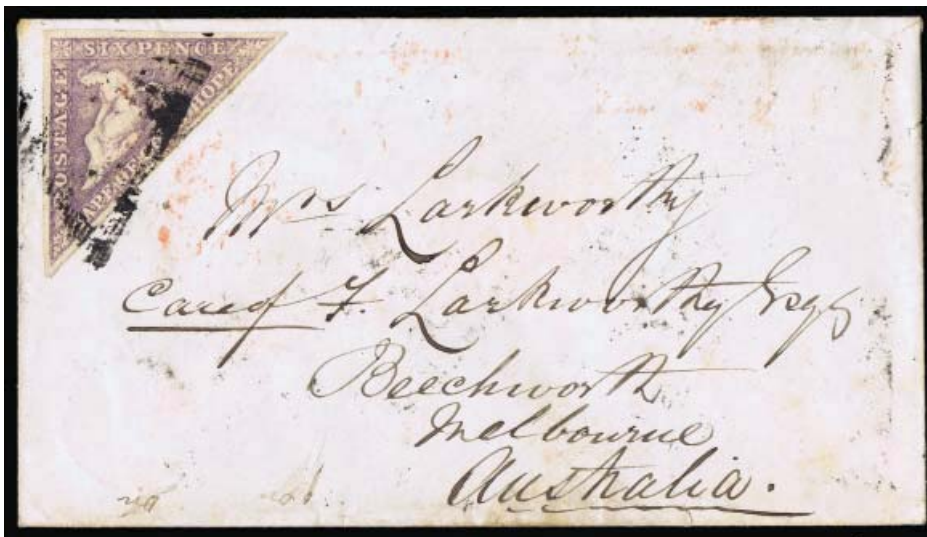 SIX PENCE
POSTAGE
CAPE OF HOPE
Mrs Larkworthy
Care of F. Larkworthy Esqr
Beechworth
Melbourne
Australia.